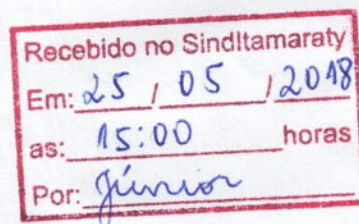 Recebido no SindItamaraty
Em: 25 / 05 / 2018
as: 15:00 horas
Por: Júnior